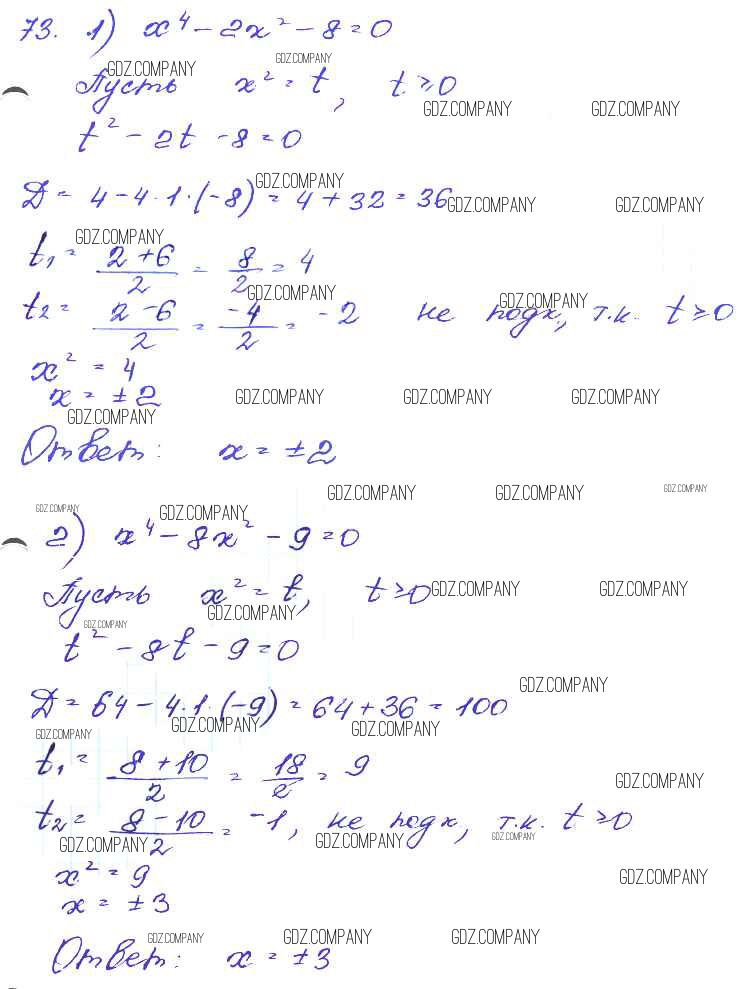 73. 1) x⁴ - 2x² - 8 = 0
GDZ.COMPANY GDZ.COMPANY
Пусть x² = t, t ≥ 0
GDZ.COMPANY GDZ.COMPANY
t² - 2t - 8 = 0
GDZ.COMPANY
D = 4 - 4·1·(-8) = 4 + 32 = 36
GDZ.COMPANY GDZ.COMPANY
GDZ.COMPANY
t₁ = (2+6)/2 = 8/2 = 4
GDZ.COMPANY GDZ.COMPANY
t₂ = (2-6)/2 = -4/2 = -2 не подх, т.к. t ≥ 0
x² = 4
x = ±2
GDZ.COMPANY GDZ.COMPANY GDZ.COMPANY
GDZ.COMPANY
Ответ: x = ±2
GDZ.COMPANY GDZ.COMPANY GDZ.COMPANY
GDZ.COMPANY GDZ.COMPANY
2) x⁴ - 8x² - 9 = 0
Пусть x² = t, t ≥ 0
GDZ.COMPANY GDZ.COMPANY
GDZ.COMPANY
GDZ.COMPANY
t² - 8t - 9 = 0
GDZ.COMPANY
D = 64 - 4·1·(-9) = 64 + 36 = 100
GDZ.COMPANY GDZ.COMPANY GDZ.COMPANY
t₁ = (8+10)/2 = 18/2 = 9
GDZ.COMPANY
t₂ = (8-10)/2 = -1, не подх, т.к. t ≥ 0
GDZ.COMPANY GDZ.COMPANY GDZ.COMPANY
x² = 9
GDZ.COMPANY
x = ±3
GDZ.COMPANY GDZ.COMPANY GDZ.COMPANY
Ответ: x = ±3